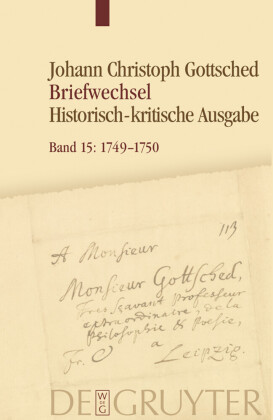 Johann Christoph Gottsched
Briefwechsel
Historisch-kritische Ausgabe
Band 15: 1749–1750
113
A Monsieur
Monsieur Gottsched,
Tres Savant Professeur
extraordinaire, de la
Philosophie & Poesie,
Fr. a
Leipzig.
DE GRUYTER